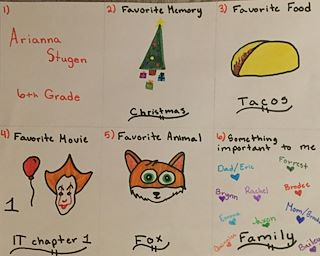 1)
Arianna
Stugen
6th Grade
2)
Favorite Memory
Christmas
3) Favorite Food
Tacos
4)
Favorite Movie
1
IT chapter 1
5) Favorite Animal
Fox
6) Something
important to me
Dad/Eric
Forrest
Brynn
Rachel
Brodee
Emma
Jaxon
Family